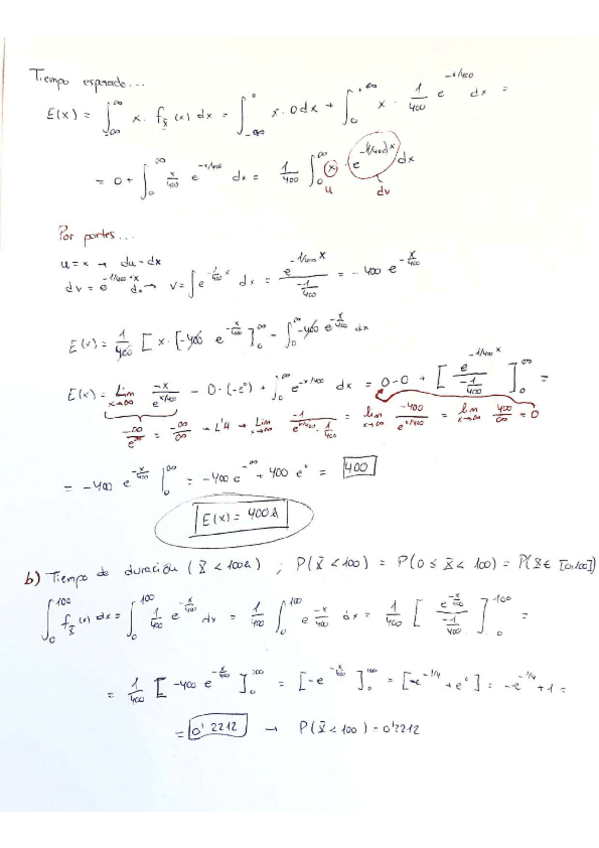 Tiempo esperado...
E(x) = ∫_{-∞}^{∞} x · f_x (x) dx = ∫_{-∞}^{0} x · 0 dx + ∫_{0}^{+∞} x · 1/400 e^{-x/400} dx =
= 0 + ∫_{0}^{∞} x/400 e^{-x/400} dx = 1/400 ∫_{0}^{∞} x · e^{-1/400 x} dx
u dv
Por partes...
u = x → du = dx
dv = e^{-1/400 · x} dx → v = ∫ e^{-1/400 x} dx = e^{-1/400 x} / (-1/400) = - 400 e^{-x/400}
E(x) = 1/400 [ x · [-400 e^{-x/400} ]_{0}^{∞} - ∫_{0}^{∞} -400 e^{-x/400} dx
E(x) = lim_{x→∞} -x/e^{x/400} - 0 · (-e^{0}) + ∫_{0}^{∞} e^{-x/400} dx = 0 - 0 + [ e^{-1/400 x} / (-1/400) ]_{0}^{∞} =
-∞/e^{∞} = -∞/∞ → L'H → lim_{x→∞} -1/(e^{x/400} · 1/400) = lim_{x→∞} -400/e^{x/400} = lim_{x→∞} 400/∞ = 0
= - 400 e^{-x/400} |_{0}^{∞} = - 400 e^{-∞} + 400 e^{0} = 400
E(x) = 400 h
b) Tiempo de duración (X < 100h) ; P(X < 100) = P(0 ≤ X < 100) = P(X ∈ [0,100])
∫_{0}^{100} f_X (x) dx = ∫_{0}^{100} 1/400 e^{-x/400} dx = 1/400 ∫_{0}^{100} e^{-x/400} dx = 1/400 [ e^{-x/400} / (-1/400) ]_{0}^{100} =
= 1/400 [ -400 e^{-x/400} ]_{0}^{100} = [-e^{-x/400} ]_{0}^{100} = [-e^{-1/4} + e^{0} ] = -e^{-1/4} + 1 =
= 0'2212 → P(X < 100) = 0'2212